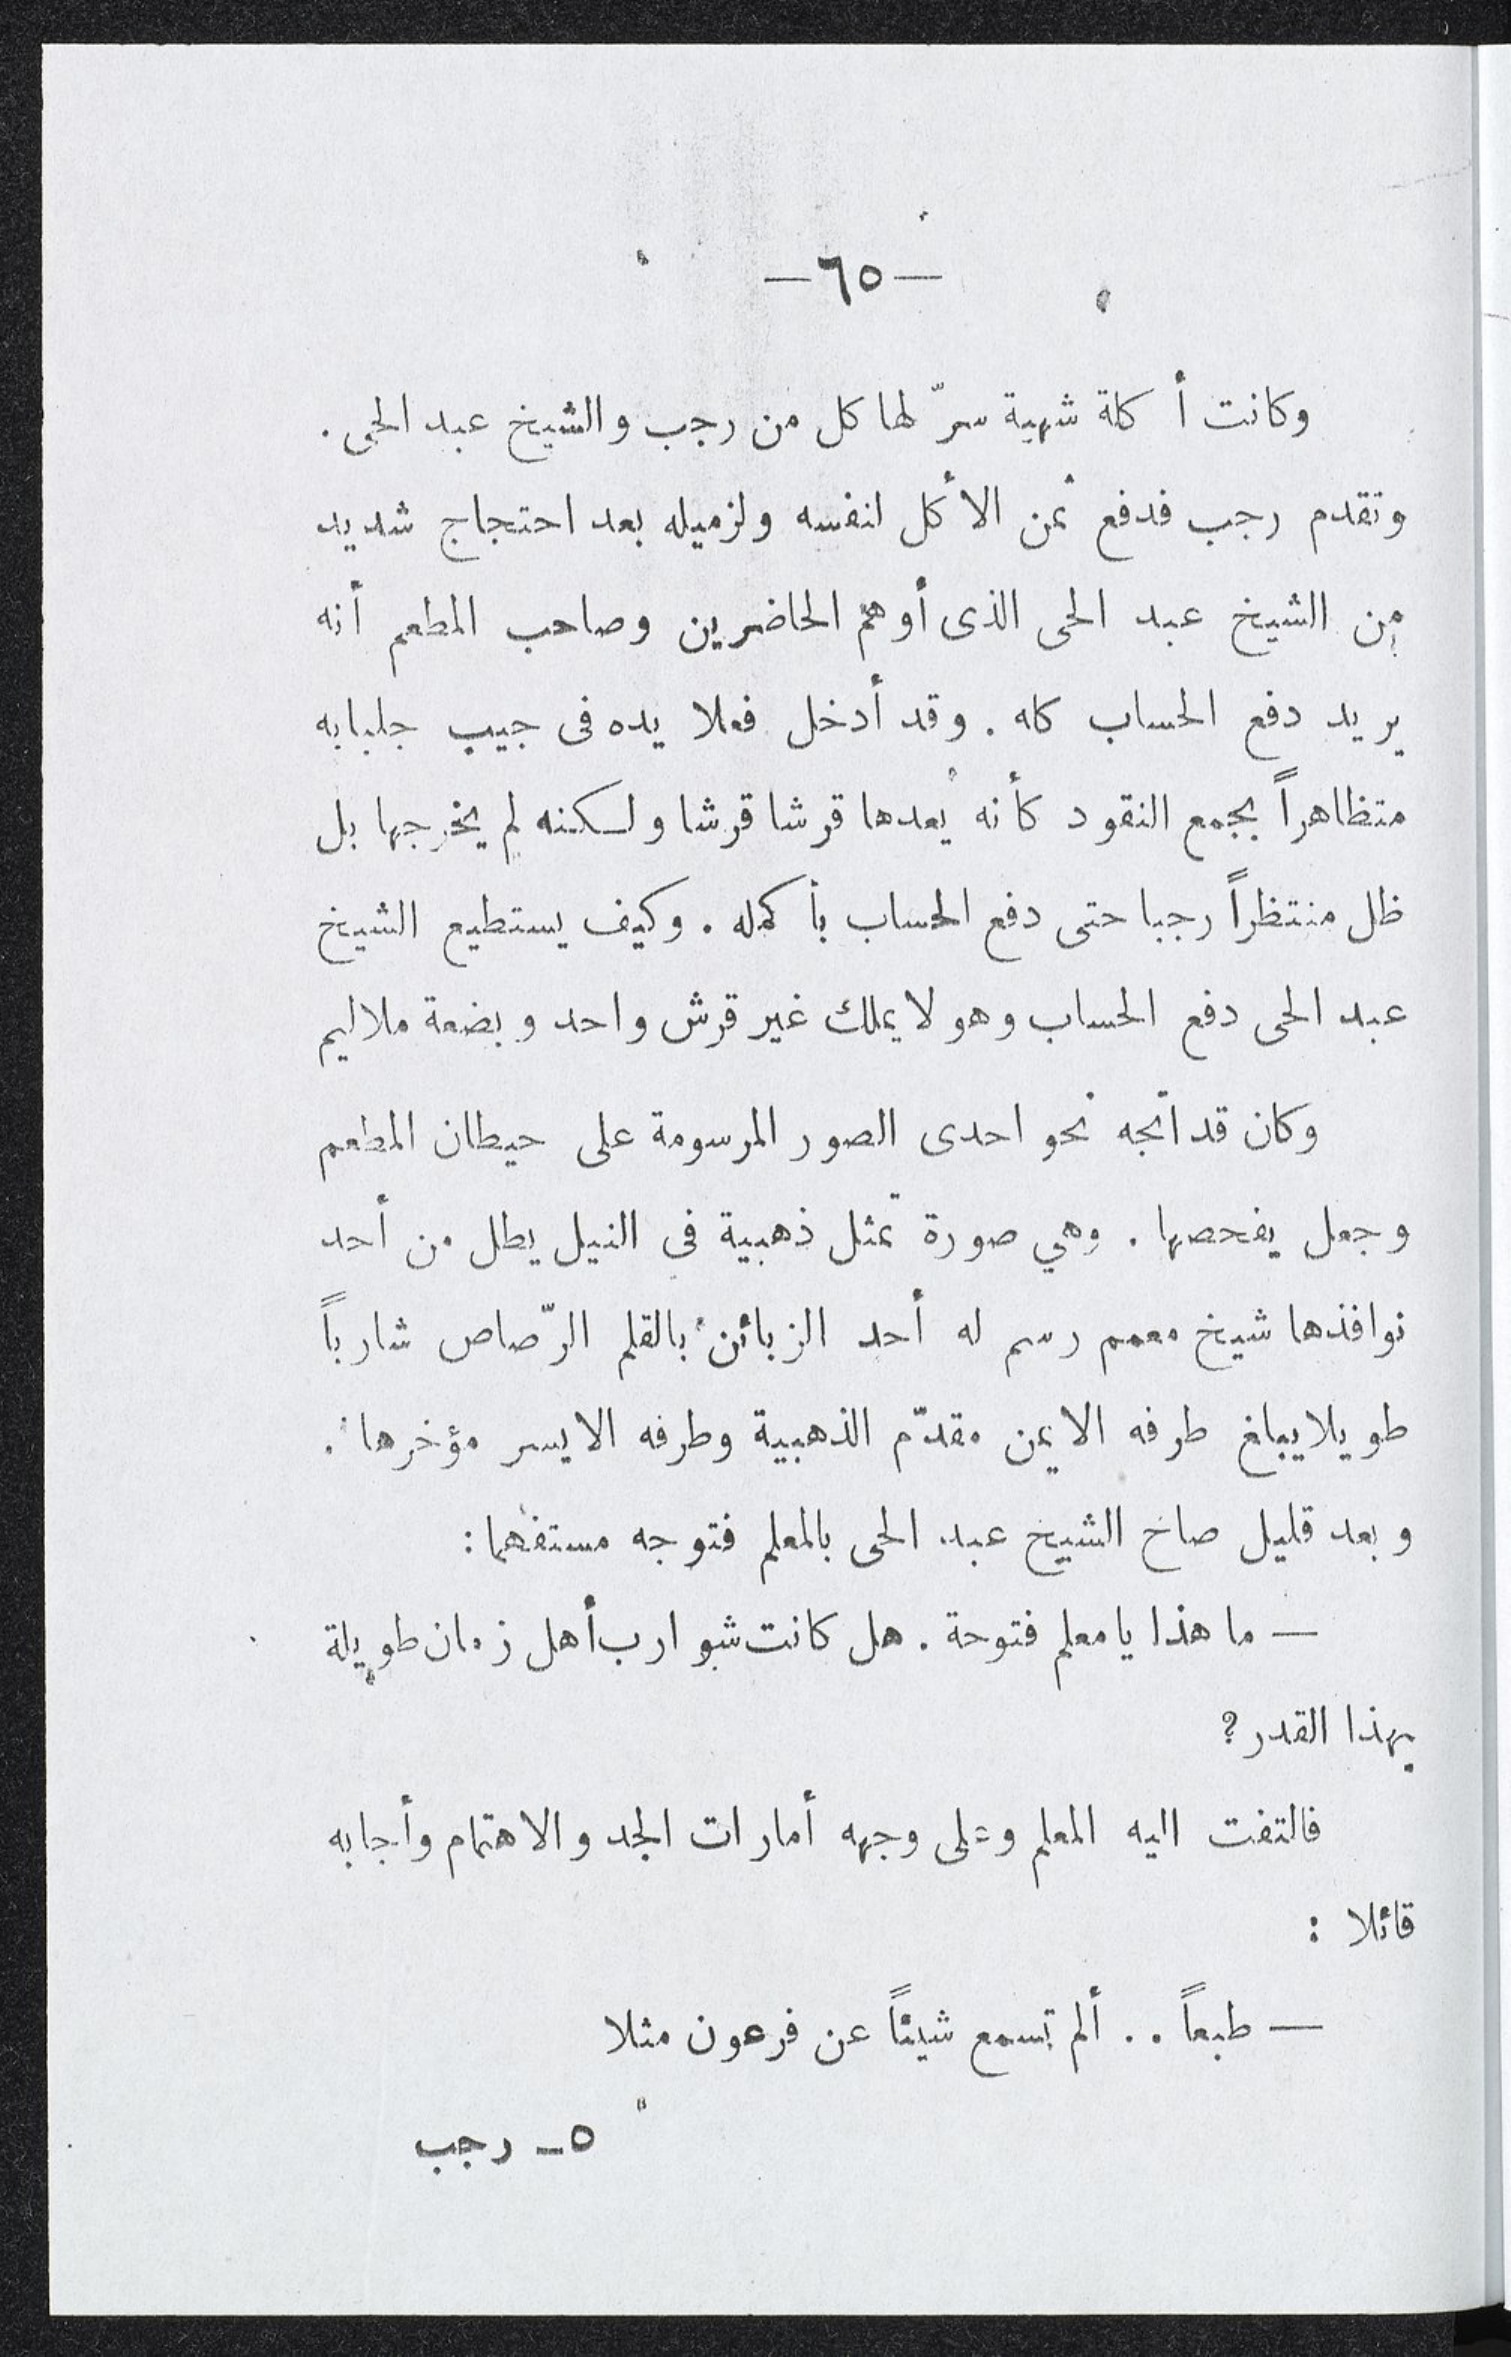 — ٦٥ —
وكانت أكلة شهية سرّ لها كل من رجب والشيخ عبد الحى .
وتقدم رجب فدفع ثمن الأكل لنفسه ولزميله بعد احتجاج شديد
من الشيخ عبد الحى الذى أوهم الحاضرين وصاحب المطعم أنه
يريد دفع الحساب كله . وقد أدخل فعلا يده فى جيب جلبابه
متظاهراً بجمع النقود كأنه يعدها قرشا قرشا ولكنه لم يخرجها بل
ظل منتظراً رجبا حتى دفع الحساب بأكمله . وكيف يستطيع الشيخ
عبد الحى دفع الحساب وهو لا يملك غير قرش واحد وبضعة ملاليم
وكان قد اتجه نحو احدى الصور المرسومة على حيطان المطعم
وجعل يفحصها . وهي صورة تمثل ذهبية في النيل يطل من أحد
نوافذها شيخ معمم رسم له أحد الزبائن بالقلم الرّصاص شارباً
طويلا يبلغ طرفه الايمن مقدّم الذهبية وطرفه الايسر مؤخرها .
وبعد قليل صاح الشيخ عبد الحى بالمعلم فتوجه مستفهما :
— ما هذا يا معلم فتوحة . هل كانت شوارب أهل زمان طويلة
بهذا القدر ؟
فالتفت اليه المعلم وعلى وجهه أمارات الجد والاهتمام وأجابه
قائلا :
— طبعاً . . ألم تسمع شيئاً عن فرعون مثلا
٥ ـ رجب